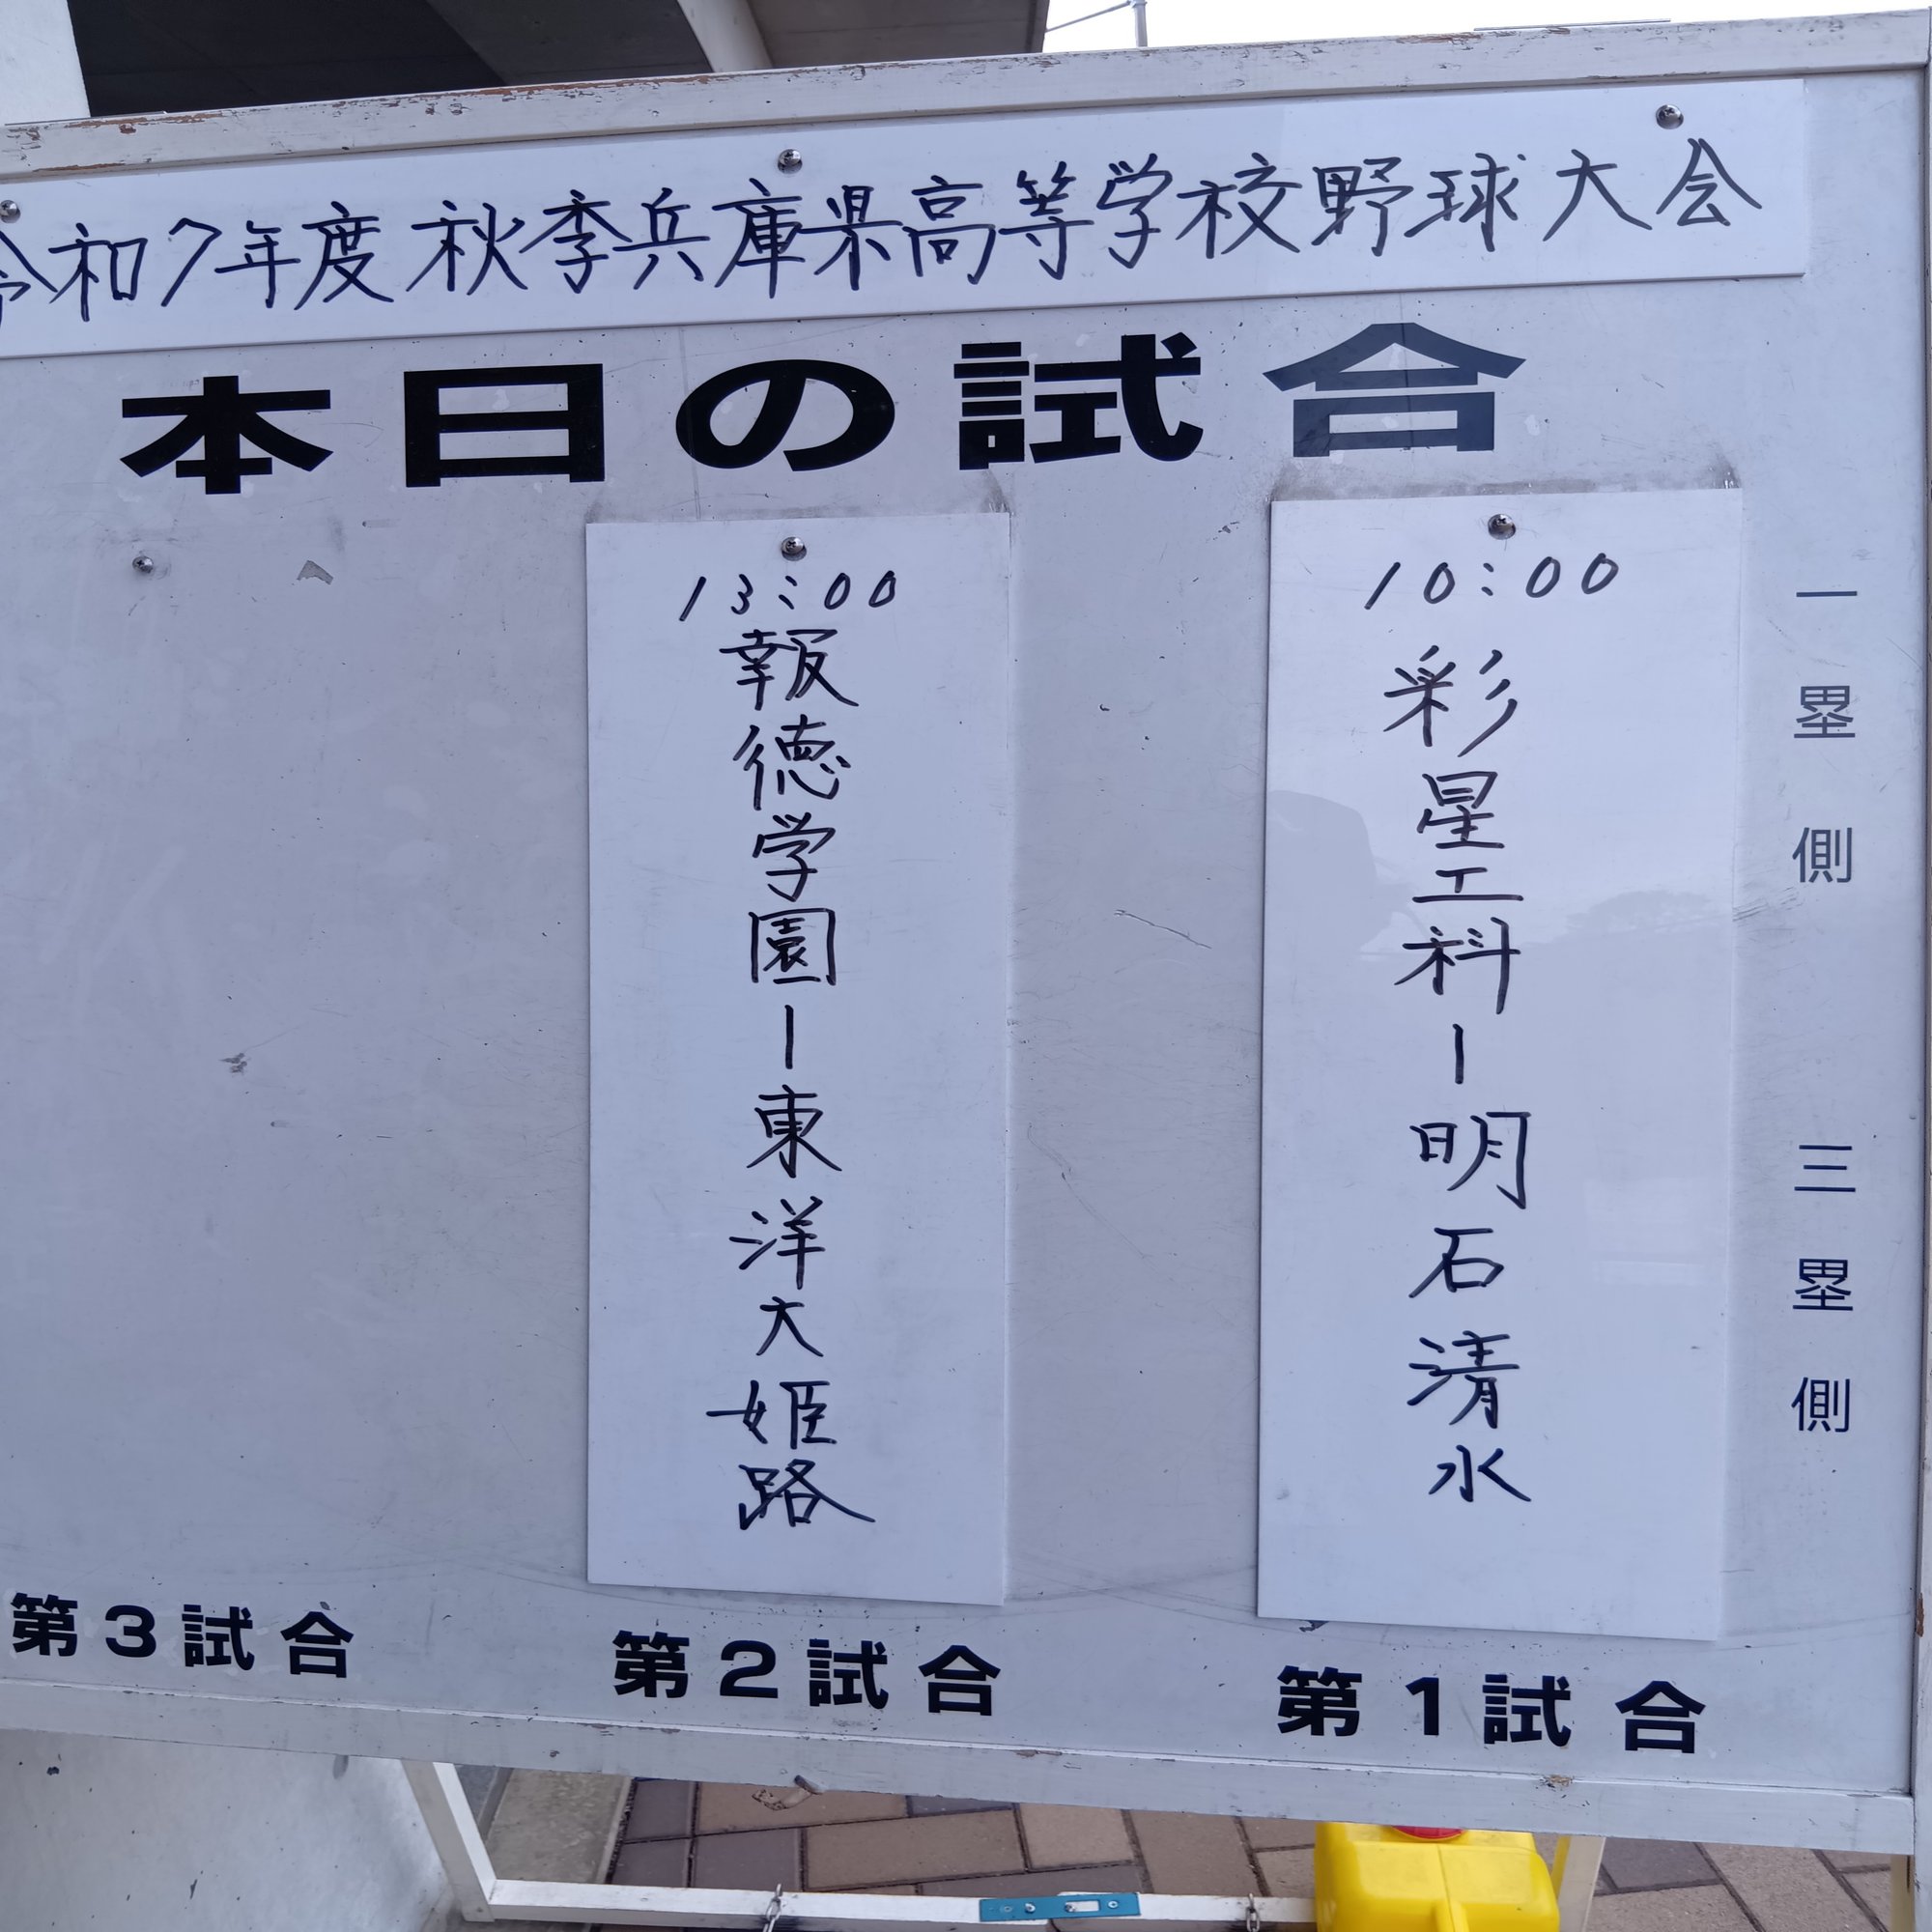 令和7年度 秋季兵庫県高等学校野球大会
本日の試合
一塁側 三塁側
10:00
彩星工科ー明石清水
第1試合
13:00
報徳学園ー東洋大姫路
第2試合
第3試合